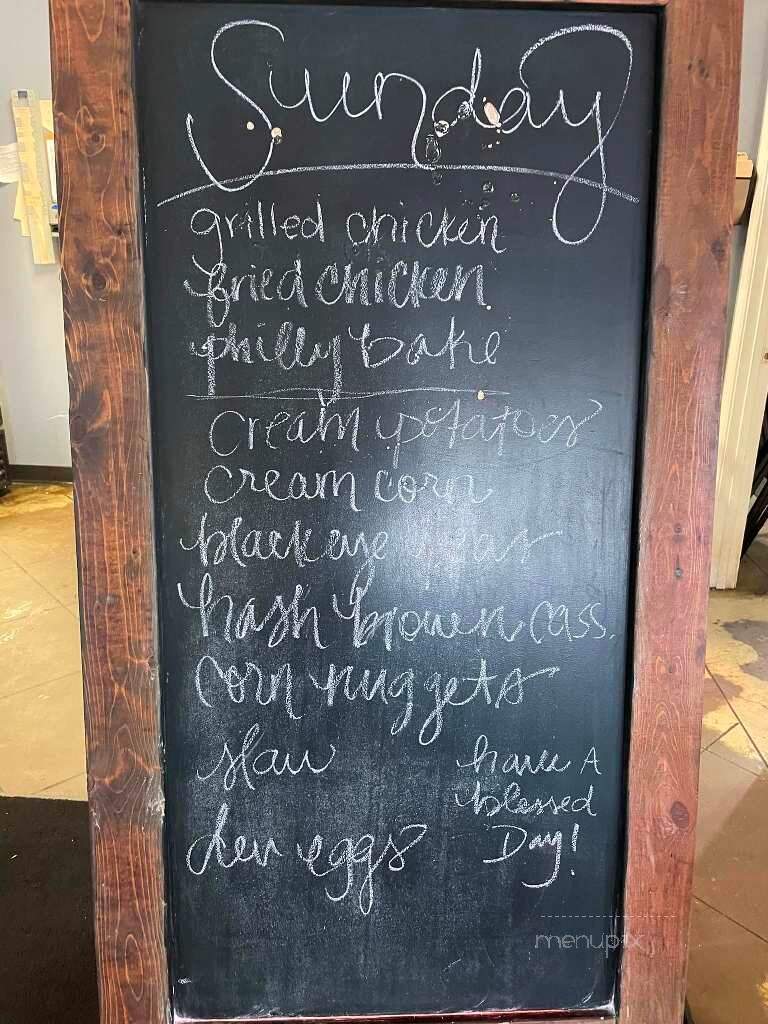 Sunday
grilled chicken
fried chicken
philly bake
cream potatoes
cream corn
blackeye peas
hash brown cass.
corn nuggets
slaw
dev eggs
have A
blessed
Day!
menupix